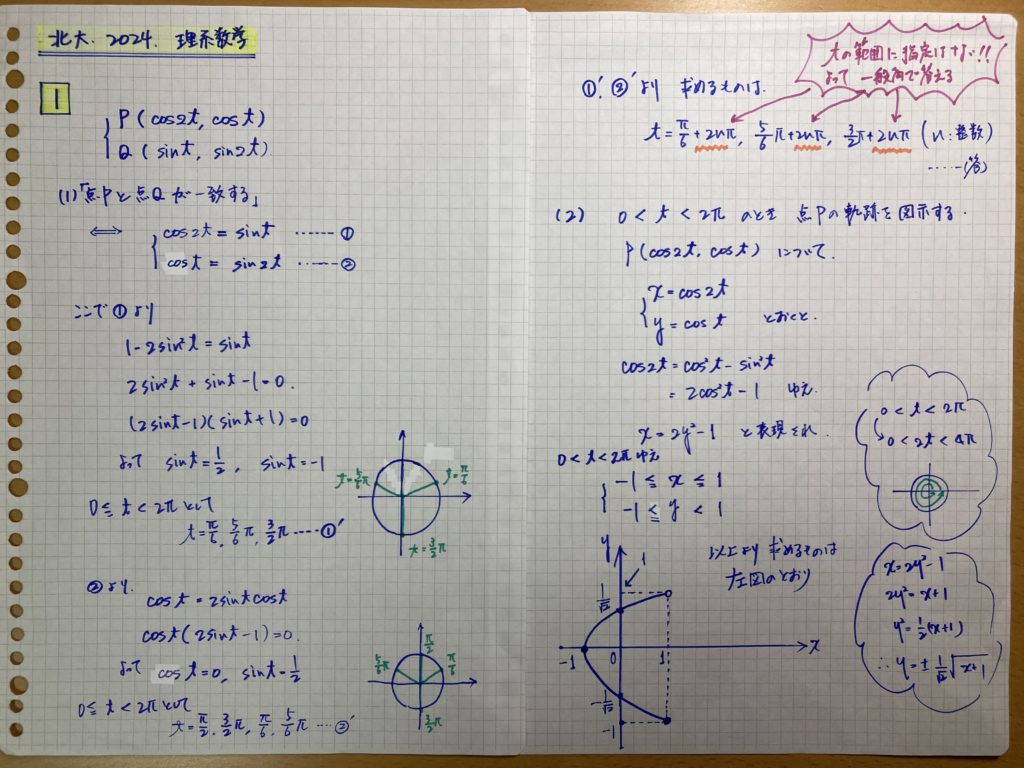 北大. 2024. 理系数学
1
P(cos2t, cost)
Q(sint, sin2t)
(1)「点Pと点Qが一致する」
⟺ cos2t = sint ‥‥‥ ①
cost = sin2t ‥‥‥ ②
ここで①より
1-2sin²t = sint
2sin²t + sint -1 = 0.
(2sint-1)(sint+1) = 0
よって sint = 1/2, sint = -1
0≦t<2πとして
t = π/6, 5/6π, 3/2π ‥‥‥ ①'
t=5/6π
t=π/6
t=3/2π
②より.
cost = 2sintcost
cost(2sint-1) = 0.
よって cost = 0, sint = 1/2
0≦t<2πとして
t = π/2, 3/2π, π/6, 5/6π ‥‥ ②'
π/2
5/6π
π/6
3/2π
tの範囲に指定はない!!
よって一般角で答える
①', ②'より 求めるものは.
t = π/6+2nπ, 5/6π+2nπ, 3/2π+2nπ (n:整数)
‥‥‥(答)
(2) 0<t<2πのとき 点Pの軌跡を図示する.
P(cos2t, cost) について.
x = cos2t
y = cost とおくと.
cos2t = cos²t - sin²t
= 2cos²t - 1 ゆえ.
x = 2y²-1 と表現され.
0<t<2πゆえ
-1≦x≦1
-1≦y<1
0<t<2π
0<2t<4π
以上より求めるものは
左図のとおり
y
1
1/√2
-1
0
1
x
-1/√2
-1
x=2y²-1
2y²=x+1
y²=1/2(x+1)
∴ y=±1/√2√x+1